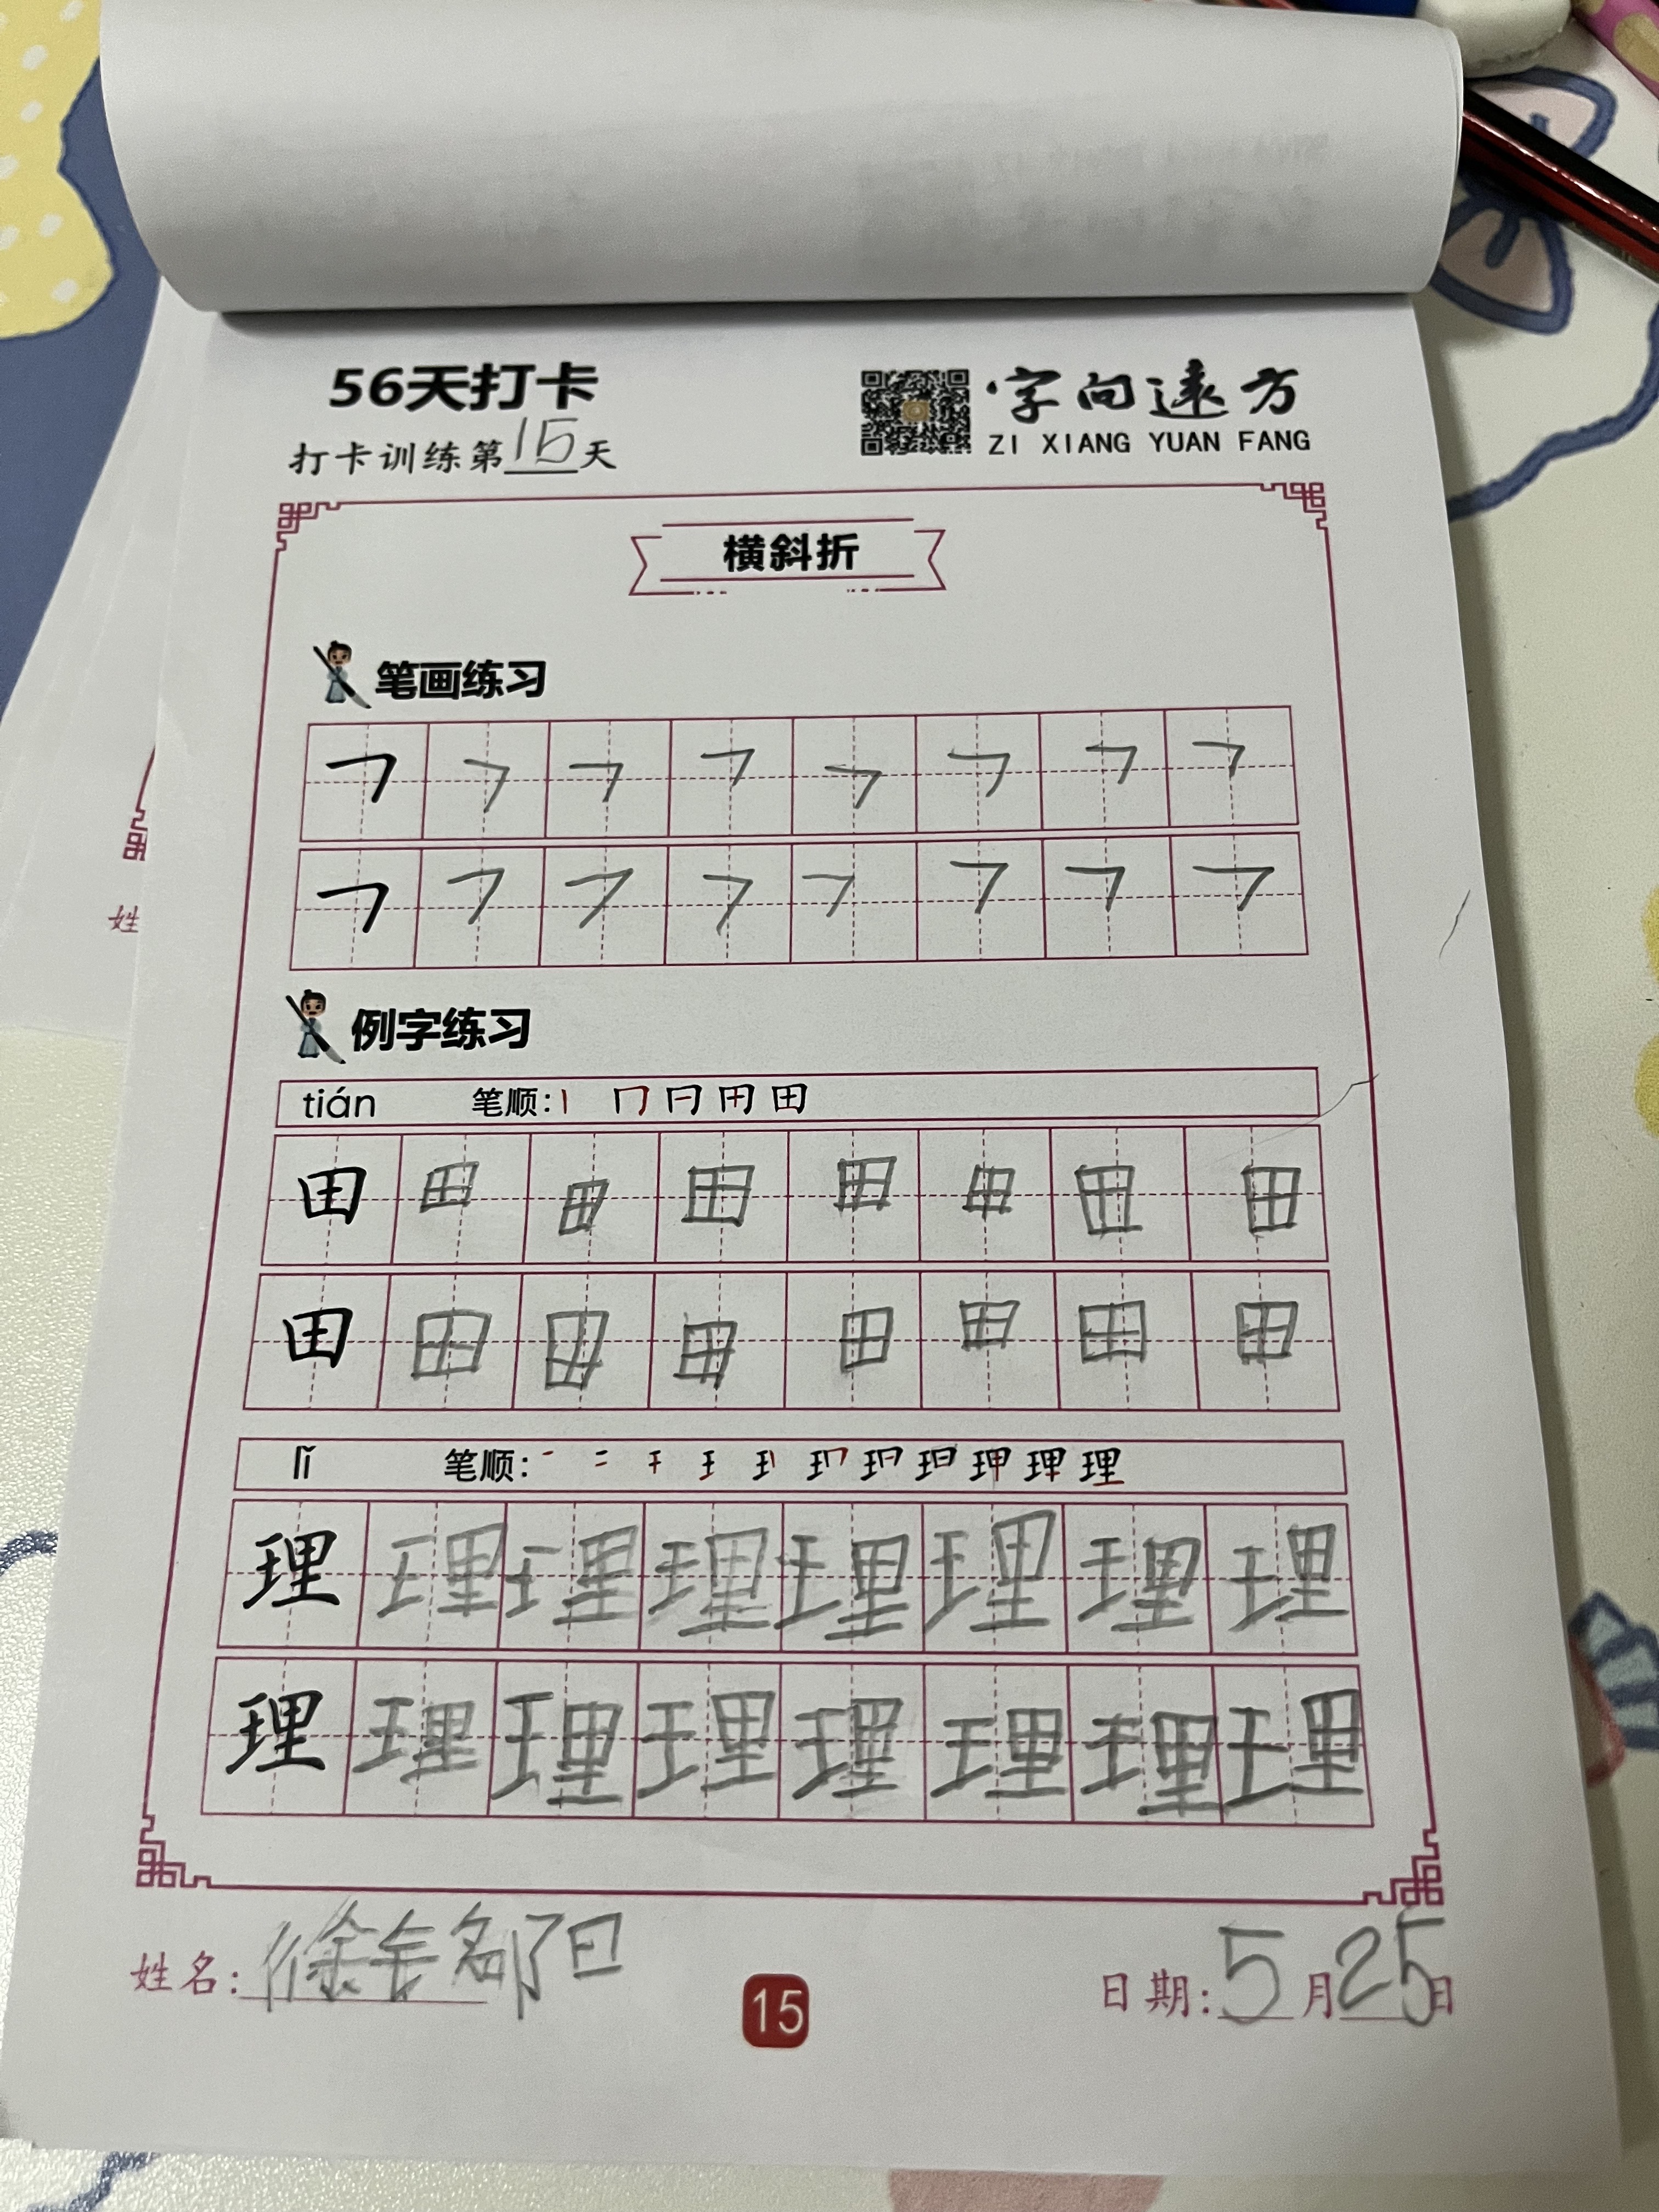 56天打卡
打卡训练第15天
字向遠方
ZI XIANG YUAN FANG
横斜折
笔画练习
㇇ ㇇ ㇇ ㇇ ㇇ ㇇ ㇇ ㇇
㇇ ㇇ ㇇ ㇇ ㇇ ㇇ ㇇ ㇇
例字练习
tián 笔顺: 丨 冂 日 田 田
田 田 田 田 田 田 田 田
田 田 田 田 田 田 田 田
lǐ 笔顺: 理
理 理 理 理 理 理 理 理
理 理 理 理 理 理 理 理
姓名: 徐
15
日期: 5月25日
姓